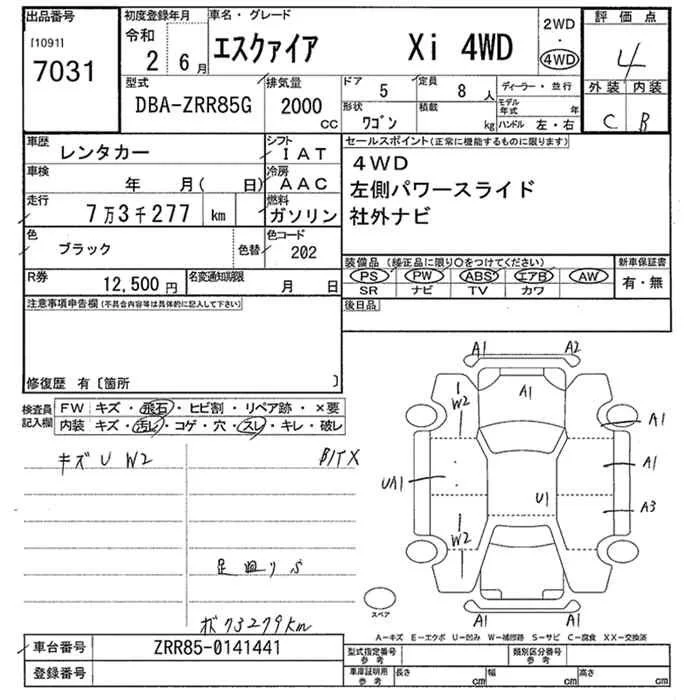 出品番号
[1091]
7031
初度登録年月
令和
2 6月
車名・グレード
エスクァイア Xi 4WD
2WD
・
4WD
評価点
4
外装 内装
C B
型式
DBA-ZRR85G
排気量
2000
CC
ドア
5
定員
8 人
形状
ワゴン
積載
kg
ディーラー・並行
モデル年式 年
ハンドル 左・右
車歴
レンタカー
シフト
IAT
車検
年 月( 日)
冷房
AAC
走行
7万3千277 km
燃料
ガソリン
色
ブラック
色替
色コード
202
R券
12,500 円
名変通知期限
月 日
セールスポイント(正常に機能するものに限ります)
4WD
左側パワースライド
社外ナビ
装備品 (純正品に限り○をつけてください)
PS PW ABS エアB AW
SR ナビ TV カワ
新車保証書
有・無
後日品
注意事項申告欄(不具合内容等は具体的に記入して下さい)
修復歴 有〔箇所 〕
検査員
記入欄
FW キズ・飛石・ヒビ割・リペア跡・×要
内装 キズ・汚レ・コゲ・穴・スレ・キレ・破レ
キズ U W2
足回りS
ボ73279km
A1 A2
A1
W2
A1
UA1
A1
U1
A3
W2
A1 A1
スペア
A-キズ E-エクボ U-凹み W-補修跡 S-サビ C-腐食 XX-交換済
車台番号
ZRR85-0141441
登録番号
型式指定番号
参考
類別区分番号
参考
車庫証明用
参考
長さ cm
幅 cm
高さ cm